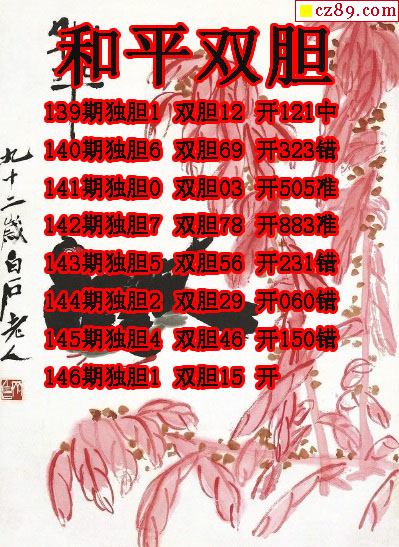 cz89.com
和平双胆
139期独胆1 双胆12 开121中
140期独胆6 双胆69 开323错
141期独胆0 双胆03 开505准
142期独胆7 双胆78 开883准
143期独胆5 双胆56 开231错
144期独胆2 双胆29 开060错
145期独胆4 双胆46 开150错
146期独胆1 双胆15 开
九十二岁白石老人